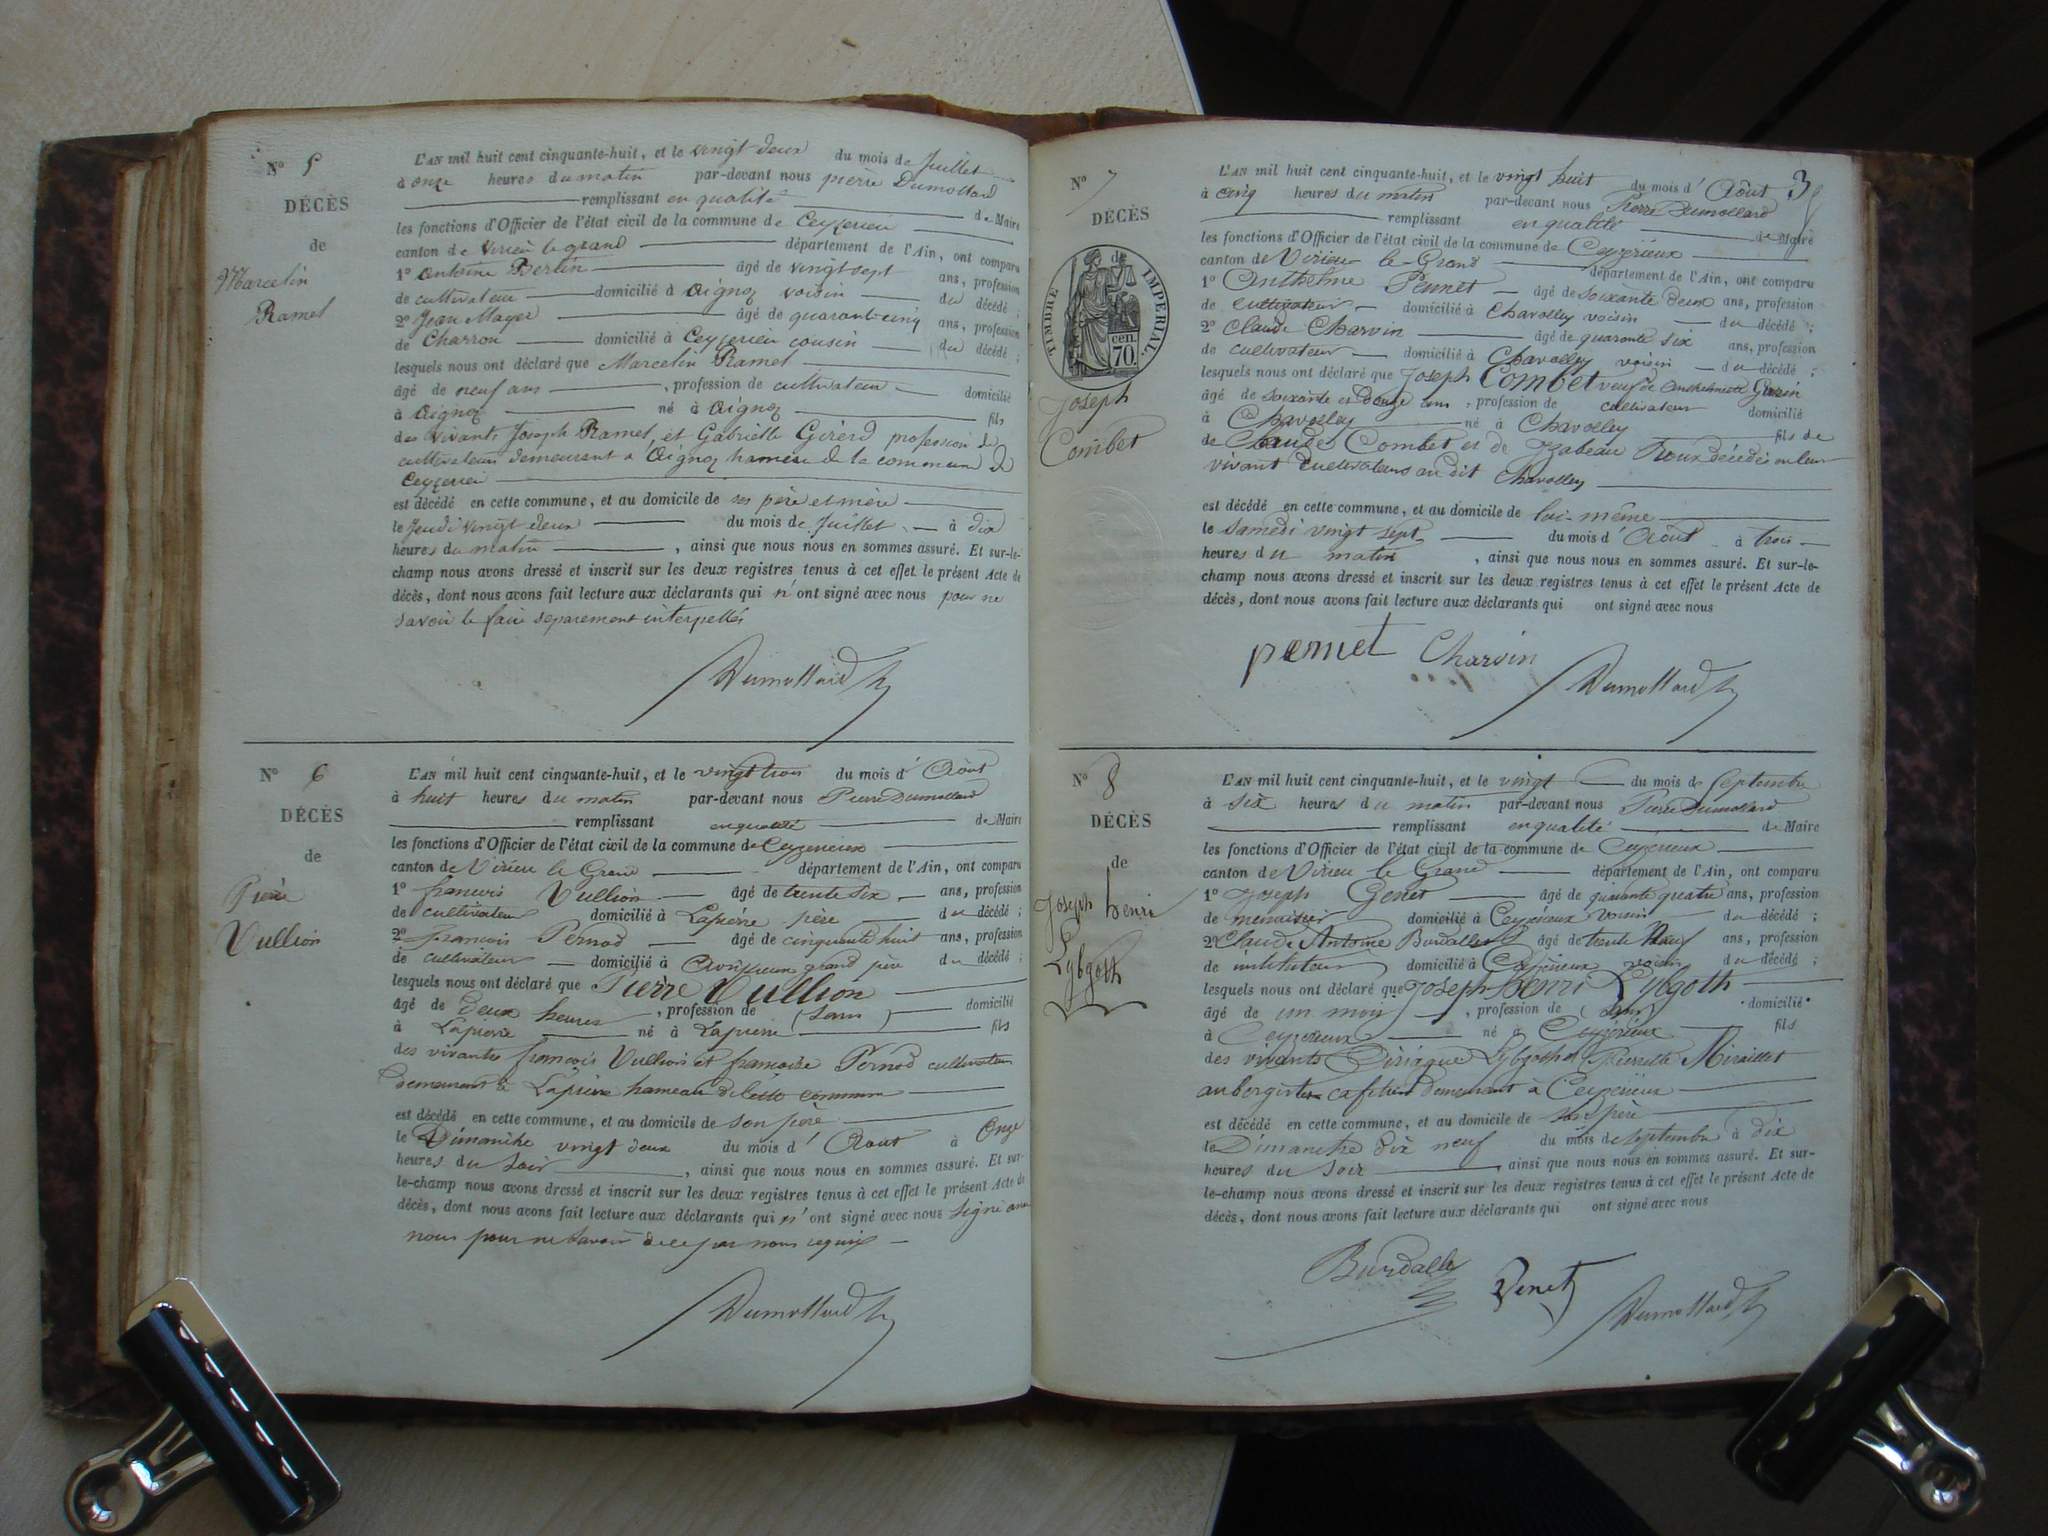 N° 5
DÉCÈS
de
Marcelin
Ramel
L'AN mil huit cent cinquante-huit, et le vingt deux du mois de Juillet
à onze heures du matin par-devant nous pierre Dumollard
remplissant en qualité de Maire
les fonctions d'Officier de l'état civil de la commune de Ceyzerieu
canton de Virieu le grand département de l'Ain, ont comparu
1° antoine Berlin âgé de vingt sept ans, profession
de cultivateur domicilié à aignoz voisin du décédé ;
2° Jean Mager âgé de quarante cinq ans, profession
de Charron domicilié à Ceyzerieu cousin du décédé ;
lesquels nous ont déclaré que Marcelin Ramel
âgé de neuf ans , profession de cultivateur domicilié
à aignoz né à aignoz fils
des vivants Joseph Ramel, et Gabrielle Girerd profession de
cultivateurs demeurant a aignoz hameau de la commune de
Ceyzerieu
est décédé en cette commune, et au domicile de ses père et mère
le Jeudi vingt deux du mois de Juillet à dix
heures du matin , ainsi que nous nous en sommes assuré. Et sur-le-
champ nous avons dressé et inscrit sur les deux registres tenus à cet effet le présent Acte de
décès, dont nous avons fait lecture aux déclarants qui n'ont signé avec nous pour ne
savoir le faire separement interpellés
Dumollard
N° 6
DÉCÈS
de
Pierre
Vullion
L'AN mil huit cent cinquante-huit, et le vingt trois du mois d'Août
à huit heures du matin par-devant nous Pierre Dumollard
remplissant en qualité de Maire
les fonctions d'Officier de l'état civil de la commune de Ceyzerieux
canton de Virieu le Grand département de l'Ain, ont comparu
1° francois Vullion âgé de trente six ans, profession
de cultivateur domicilié à Lapierre père du décédé ;
2° francois Pernod âgé de cinquante huit ans, profession
de cultivateur domicilié à grand père du décédé ;
lesquels nous ont déclaré que Pierre Vullion
âgé de deux heures , profession de (sans) domicilié
à Lapierre né à Lapierre fils
des vivants françois Vullion et françoise Pernod cultivateurs
demeurant à Lapierre hameau de cette commune
est décédé en cette commune, et au domicile de son père
le Dimanche vingt deux du mois d'Aout à Onze
heures du soir , ainsi que nous nous en sommes assuré. Et sur-
le-champ nous avons dressé et inscrit sur les deux registres tenus à cet effet le présent Acte de
décès, dont nous avons fait lecture aux déclarants qui n'ont signé avec nous signé avec
nous pour ne savoir de ce par nous requis
Dumollard
3
N° 7
DÉCÈS
de
TIMBRE IMPERIAL.
cen. 70.
Joseph
Combet
L'AN mil huit cent cinquante-huit, et le vingt huit du mois d'Août
à cinq heures du matin par-devant nous Pierre Dumollard
remplissant en qualité de Maire
les fonctions d'Officier de l'état civil de la commune de Ceyzérieux
canton de Virieu le Grand département de l'Ain, ont comparu
1° Anthelme Pennet âgé de soixante deux ans, profession
de cultivateur domicilié à Chavolley voisin du décédé ;
2° Claude Charvin âgé de quarante six ans, profession
de cultivateur domicilié à Chavolley voisin du décédé ;
lesquels nous ont déclaré que Joseph Combet veuf de Guerin
âgé de soixante et douze ans , profession de cultivateur domicilié
à Chavolley né à Chavolley fils de
de Claude Combet et de Izabeau Roux décédés en leur
vivant cultivateurs au dit Chavolley
est décédé en cette commune, et au domicile de lui-même
le samedi vingt sept du mois d'Août à trois
heures du matin , ainsi que nous nous en sommes assuré. Et sur-le-
champ nous avons dressé et inscrit sur les deux registres tenus à cet effet le présent Acte de
décès, dont nous avons fait lecture aux déclarants qui ont signé avec nous
pennet Charvin Dumollard
N° 8
DÉCÈS
de
Joseph henri
Lybgoth
L'AN mil huit cent cinquante-huit, et le vingt du mois de Septembre
à six heures du matin par-devant nous Pierre Dumollard
remplissant en qualité de Maire
les fonctions d'Officier de l'état civil de la commune de Ceyzerieux
canton de Virieu le Grand département de l'Ain, ont comparu
1° Joseph Genet âgé de quarante quatre ans, profession
de menuisier domicilié à Ceyzérieux voisin du décédé ;
2° Claude Antoine Burdallet âgé de trente neuf ans, profession
de instituteur domicilié à Ceyzérieux voisin du décédé ;
lesquels nous ont déclaré que Joseph henri Lybgoth
âgé de un mois , profession de (sans) domicilié
à Ceyzerieux né à Ceyzérieux fils
des vivants Ciriaque Lybgoth et Pierrette Miraillet
aubergistes cafetiers demeurant à Ceyzerieux
est décédé en cette commune, et au domicile de son père
le Dimanche dix neuf du mois de septembre à dix
heures du soir , ainsi que nous nous en sommes assuré. Et sur-
le-champ nous avons dressé et inscrit sur les deux registres tenus à cet effet le présent Acte de
décès, dont nous avons fait lecture aux déclarants qui ont signé avec nous
Burdallet Genet Dumollard